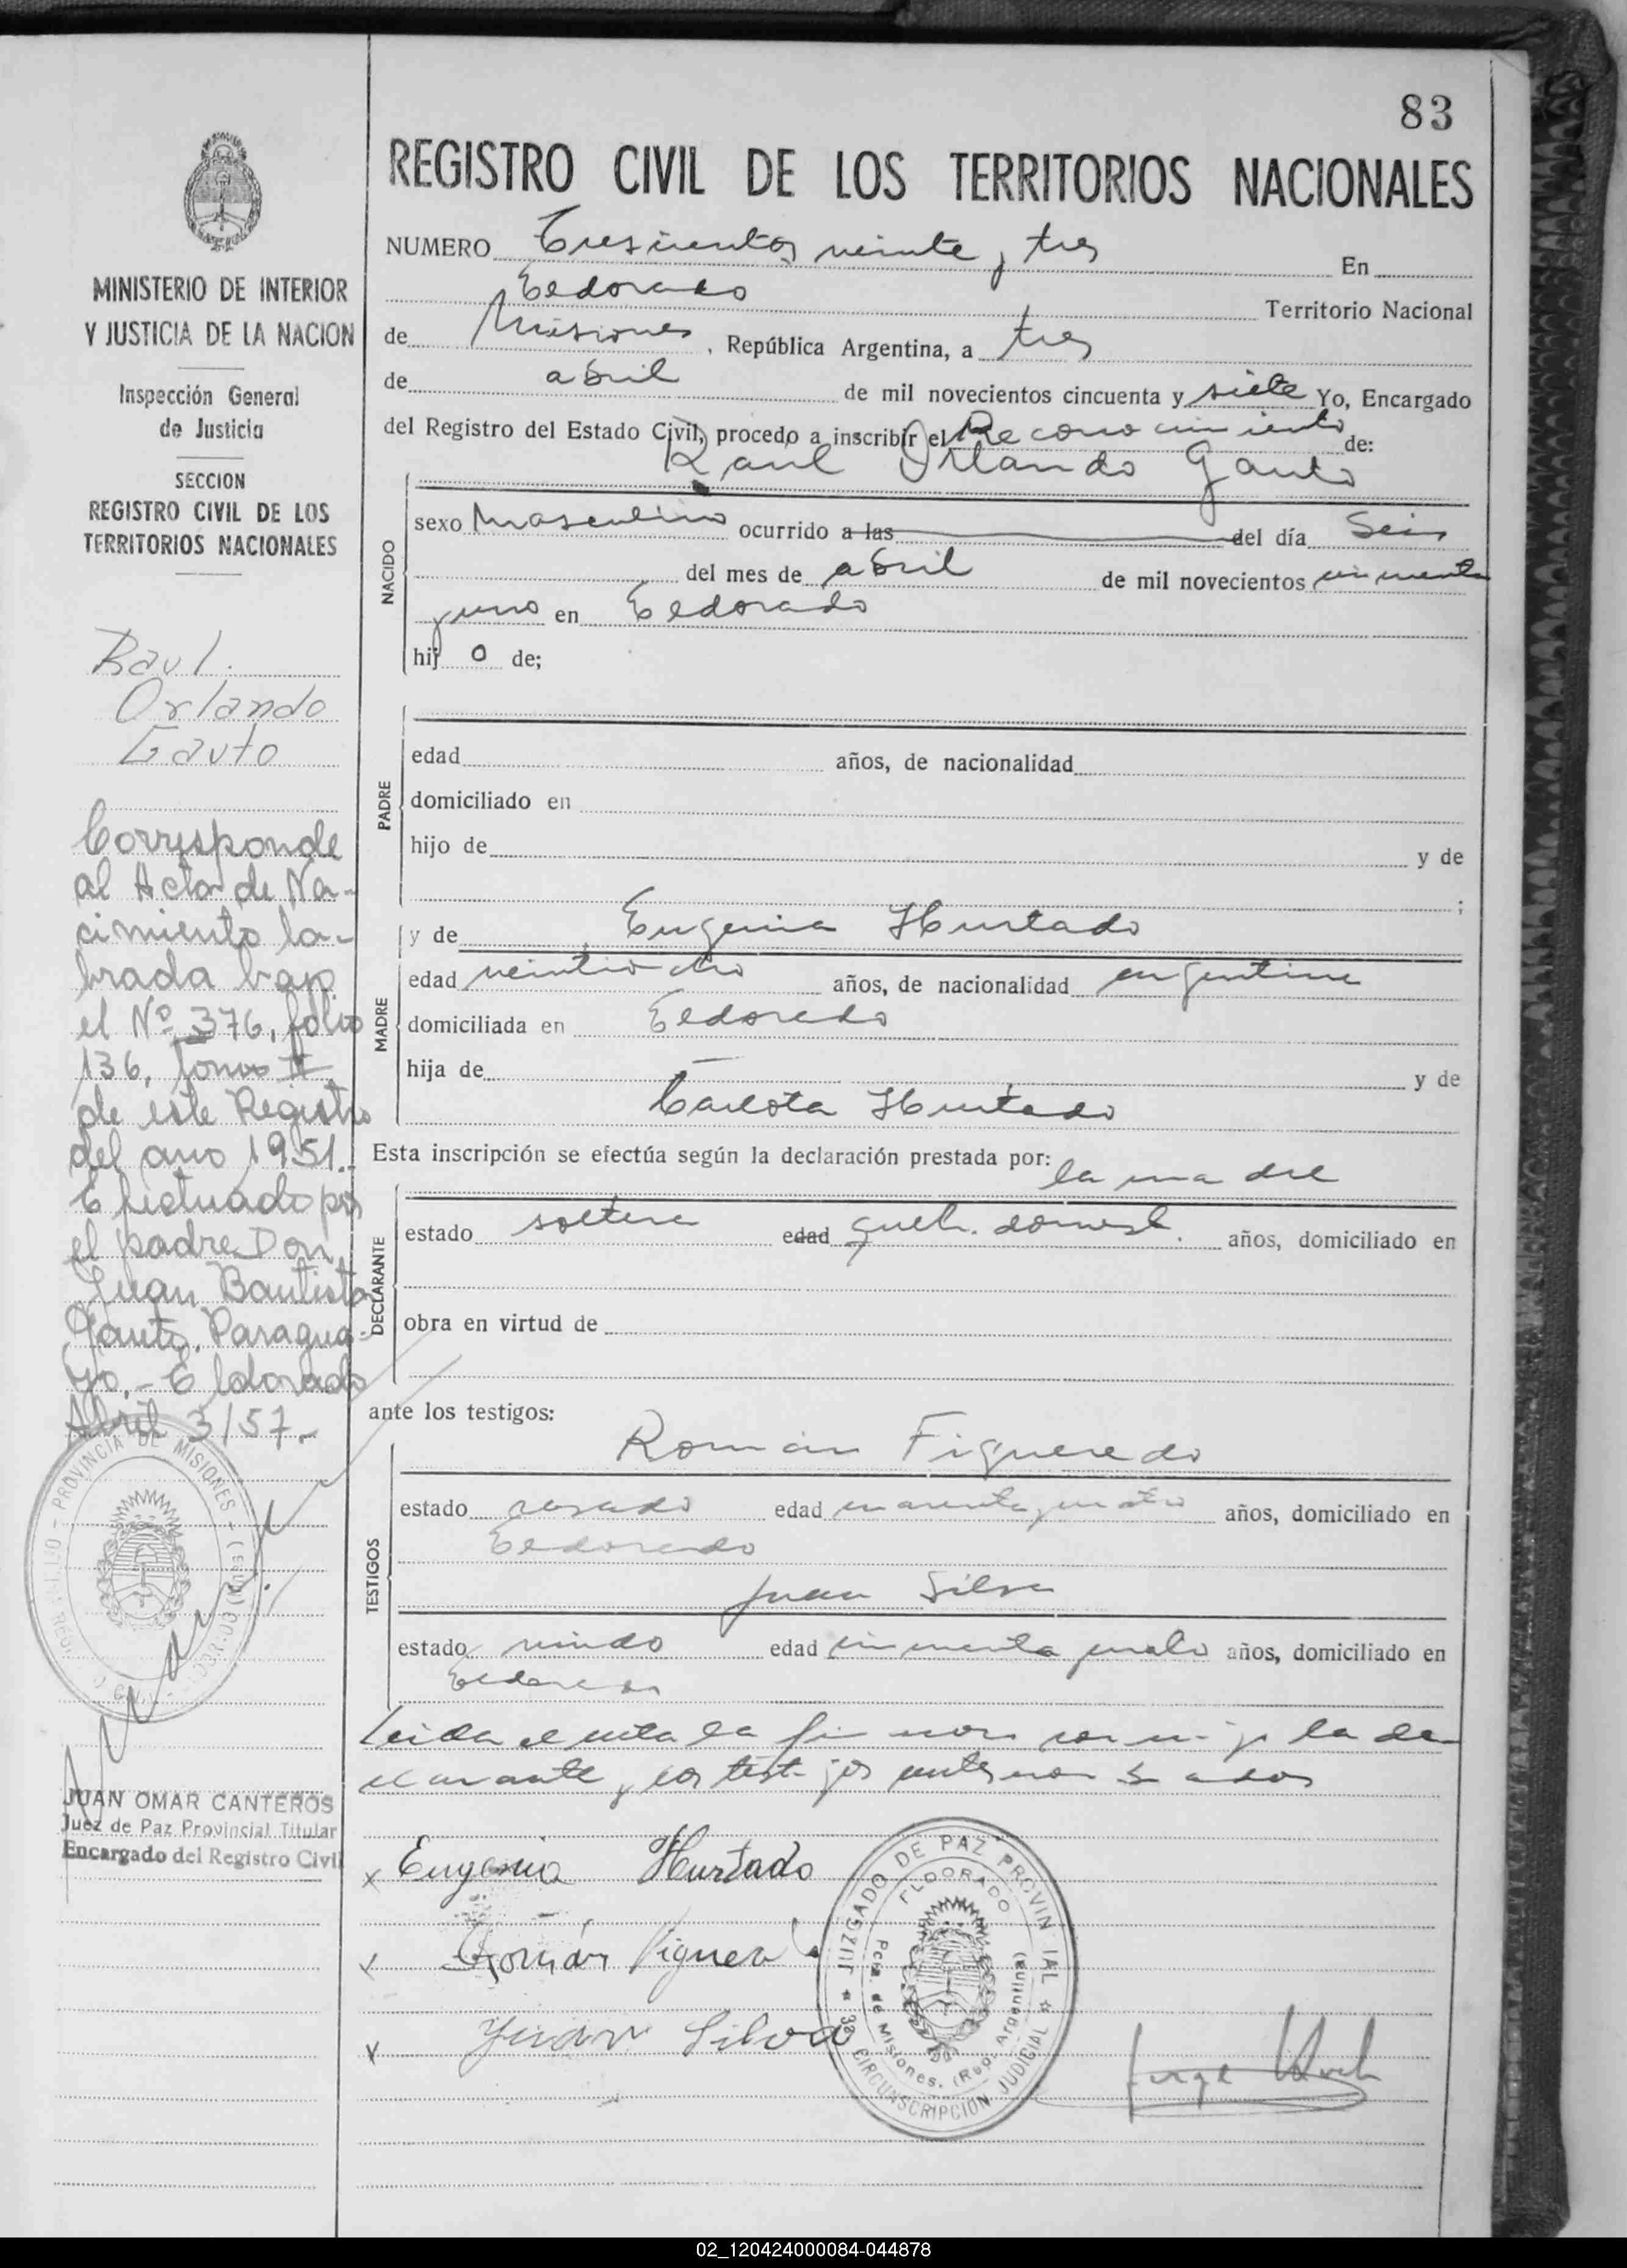 83
REGISTRO CIVIL DE LOS TERRITORIOS NACIONALES
NUMERO Trescientos veinte y tres En
Eldorado Territorio Nacional
de Misiones, República Argentina, a tres
de abril de mil novecientos cincuenta y siete Yo, Encargado
del Registro del Estado Civil, procedo a inscribir el Reconocimiento de:
Raul Orlando Gauto
NACIDO
sexo Masculino ocurrido a las del día Seis
del mes de abril de mil novecientos cincuenta
y uno en Eldorado
hijo de;
PADRE
edad años, de nacionalidad
domiciliado en
hijo de y de
;
y de Eugenia Hurtado
MADRE
edad veintiocho años, de nacionalidad argentina
domiciliada en Eldorado
hija de y de
Carlota Hurtado
Esta inscripción se efectúa según la declaración prestada por: la madre
DECLARANTE
estado soltera edad queh. domest. años, domiciliado en
obra en virtud de
ante los testigos:
Román Figueredo
TESTIGOS
estado casado edad cuarenta y cuatro años, domiciliado en
Eldorado
Juan Silva
estado viudo edad cincuenta y cuatro años, domiciliado en
Eldorado
Leida el acta la firman conmigo la de
clarante y los testigos antes nombrados
Eugenia Hurtado
Román Figuer
Juan Silva
JUZGADO DE PAZ PROVINCIAL
ELDORADO
Pcia. de Misiones. (Rep. Argentina)
CIRCUNSCRIPCION JUDICIAL
MINISTERIO DE INTERIOR
Y JUSTICIA DE LA NACION
Inspección General
de Justicia
SECCION
REGISTRO CIVIL DE LOS
TERRITORIOS NACIONALES
Raul
Orlando
Gauto
Corresponde
al Acta de Na-
cimiento la-
brada bajo
el Nº 376, folio
136, Tomo II
de este Registro
del año 1951.-
Efectuado por
el padre Don
Juan Bautista
Gauto, Paragua-
yo.- Eldorado
Abril 3/57.-
PROVINCIA DE MISIONES
JUAN OMAR CANTEROS
Juez de Paz Provincial Titular
Encargado del Registro Civil
02_120424000084-044878